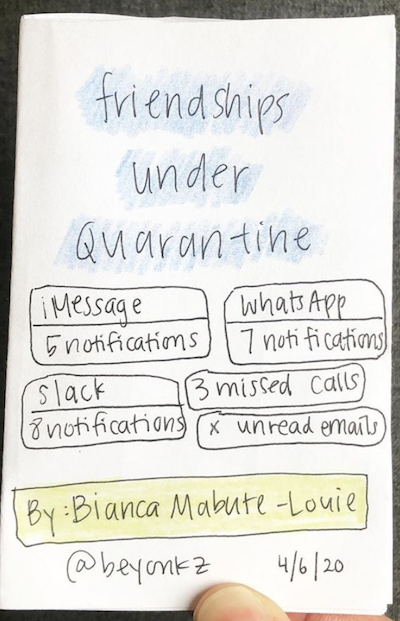 friendships
under
Quarantine
iMessage
5 notifications
WhatsApp
7 notifications
Slack
8 notifications
3 missed calls
x unread emails
By: Bianca Mabute-Louie
@beyonkz
4/6/20